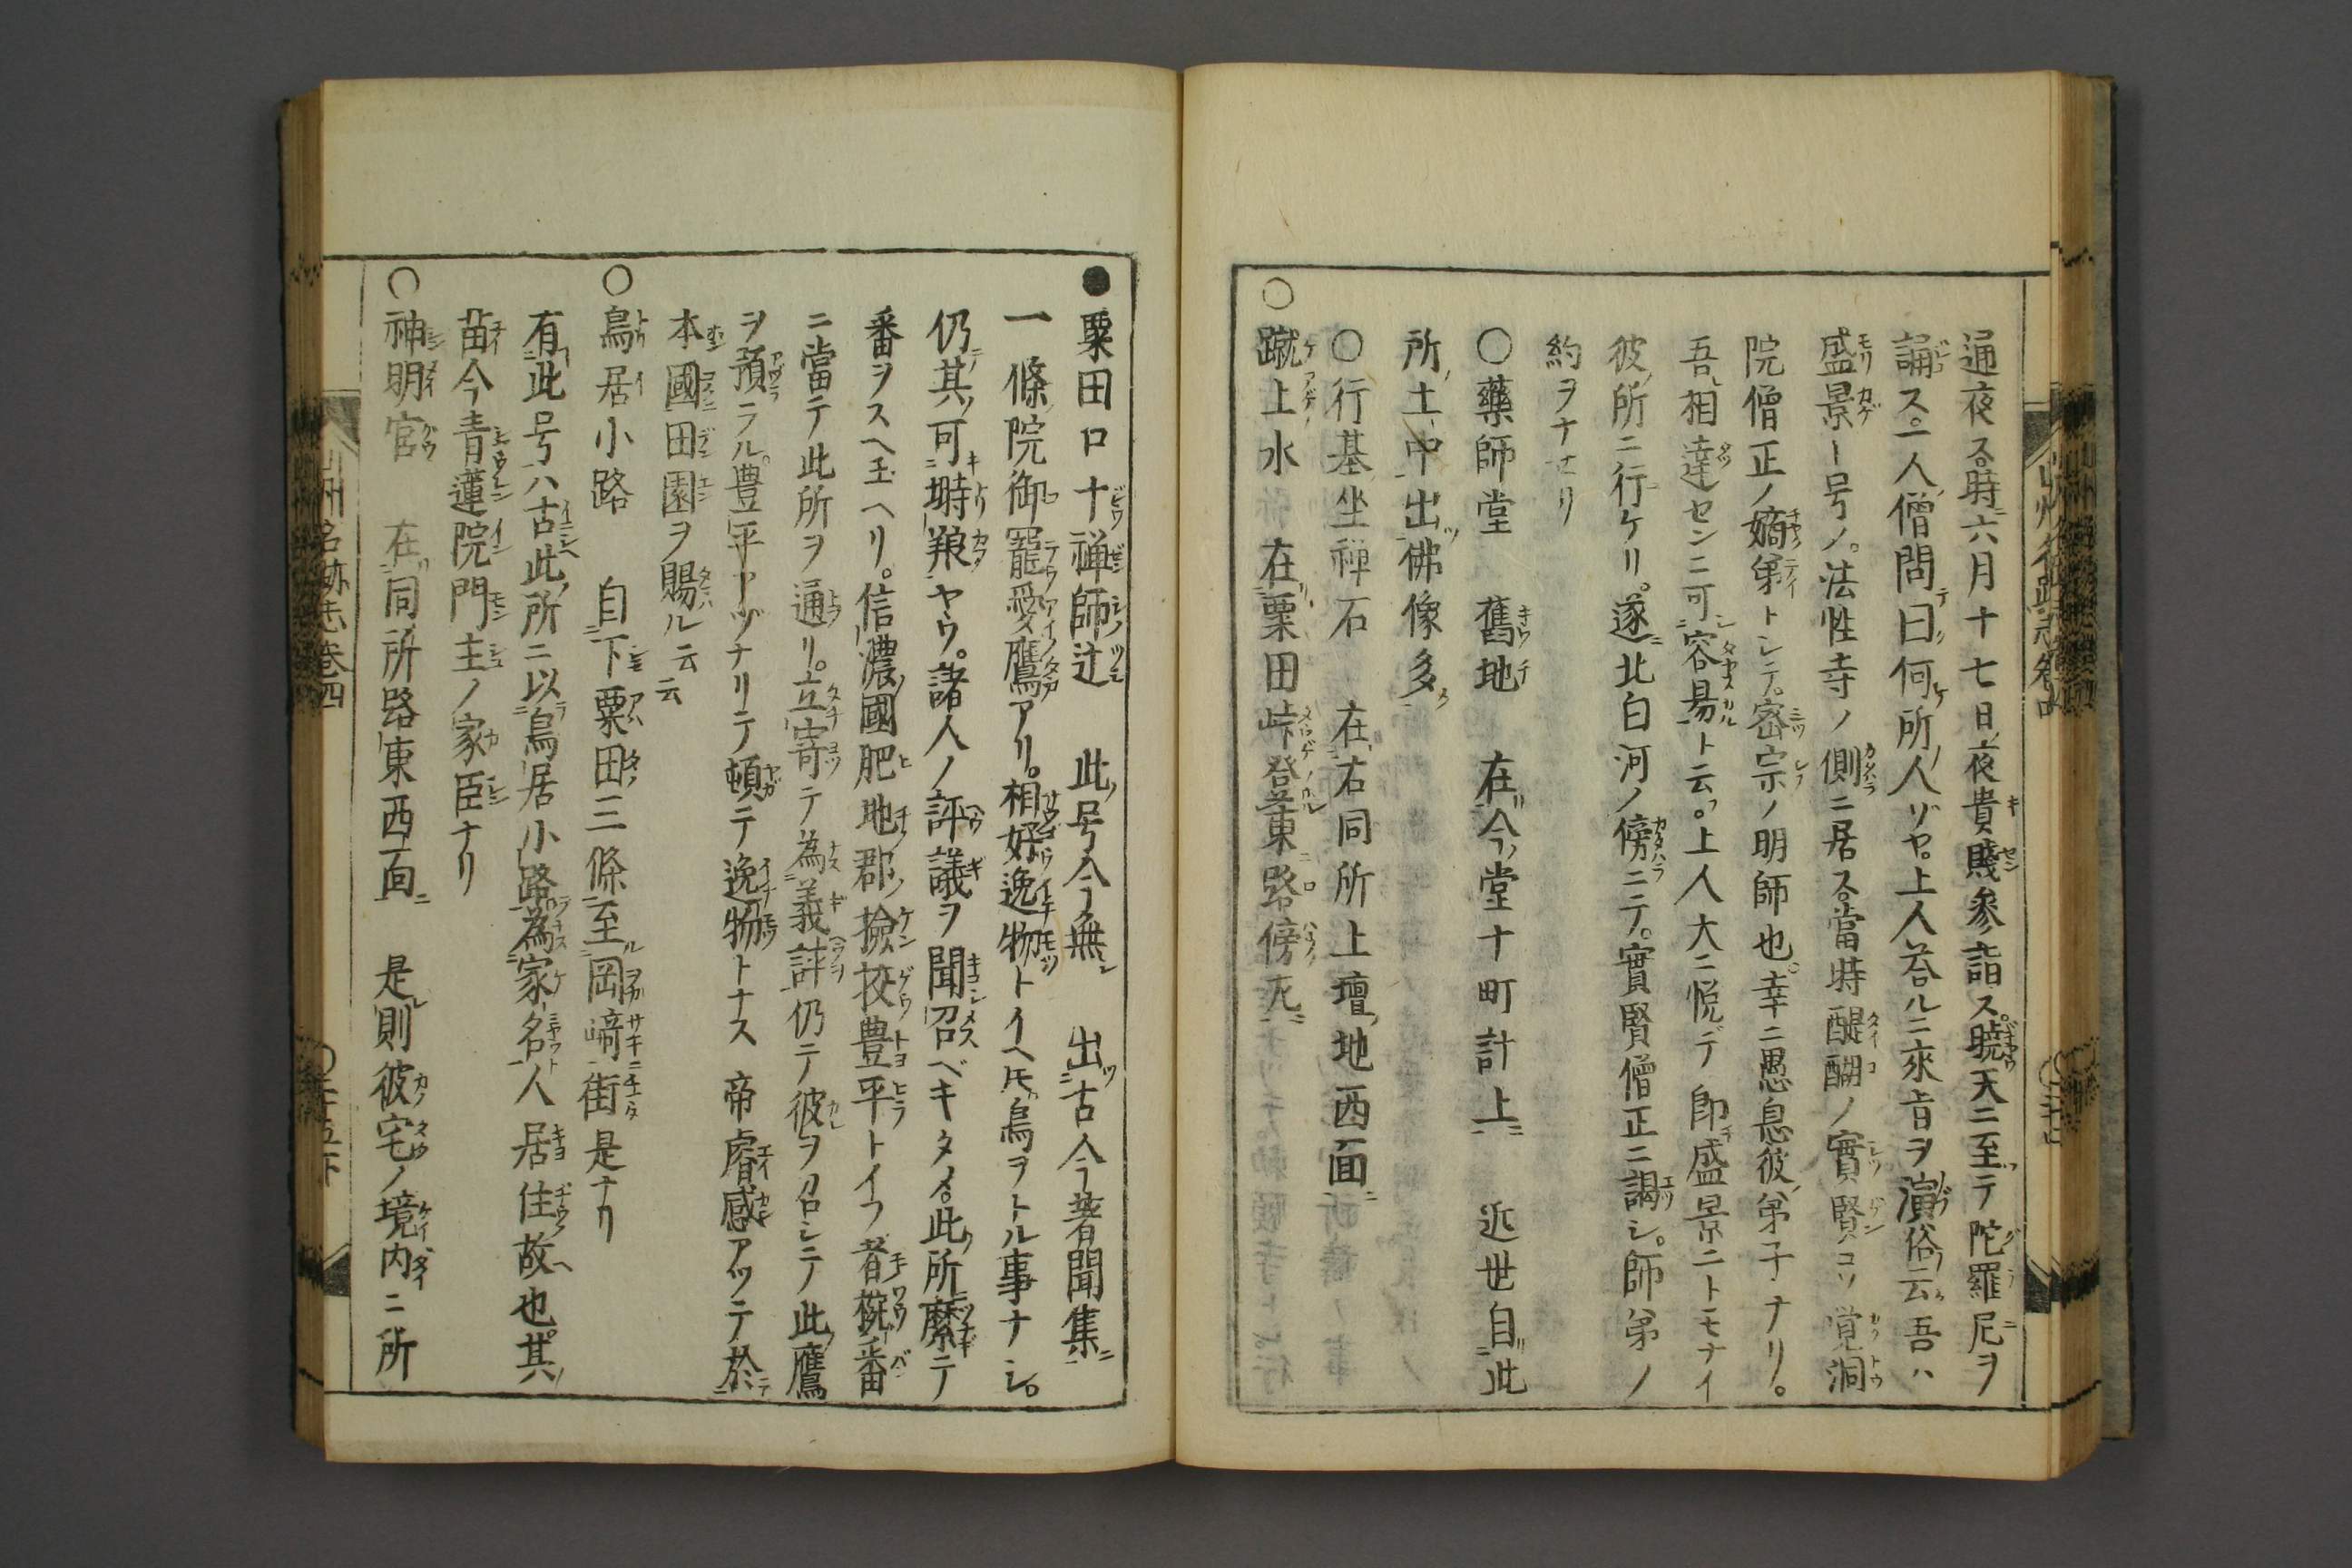 通夜ス時ニ六月十七日ノ夜貴賤参詣ス暁天ニ至テ陀羅尼ヲ
誦ス一人ノ僧問テ曰何ノ所ノ人ゾヤ上人荅ルニ來旨ヲ演俗ノ云ク吾ハ
盛景ト号ノ。法性寺ノ側ニ居ス當時醍醐ノ實賢コソ覚洞
院僧正ノ嫡弟トシテ。密宗ノ明師也。幸ニ愚息彼ノ弟子ナリ。
吾相達センニ可容易ト云。上人大ニ悦デ即盛景ニトモナイ
彼ノ所ニ行ケリ。遂ニ北白河ノ傍ニテ。實賢僧正ニ謁シ。師弟ノ
約ヲナセリ
○藥師堂 舊地 在今ノ堂十町計上ニ 近世自此
所ノ土中出佛像多
○行基坐禅石 在右同所上壇ノ地西面
○蹴上水 在粟田峠登東路傍
●粟田口十禅師辻 此号今ハ無シ 出古今著聞集ニ
一條院御寵愛ノ鷹アリ。相好逸物トイヘ𪜈烏ヲトル事ナシ。
仍其可塒ヤウ。諸人ノ評議ヲ聞召ベキタメ此所ニ繋テ
番ヲスヘ玉ヘリ。信濃國肥地郡ノ撿挍豊平トイフ者椀番
ニ當テ此所ヲ通リ。立寄テ為義評仍テ彼ヲ召シテ此鷹
ヲ預ラル。豊平アヅナリテ頓テ逸物トナス 帝睿感アツテ於
本國田園ヲ賜ル云云
○鳥居小路 自下粟田三條至岡﨑街是ナリ
有此号ハ古此ノ所ニ以鳥居小路為家名人居住故也其
苗今青蓮院門主ノ家臣ナリ
○神明宮 在同所路東西面 是則彼宅ノ境内ニ所
山州名跡志巻四